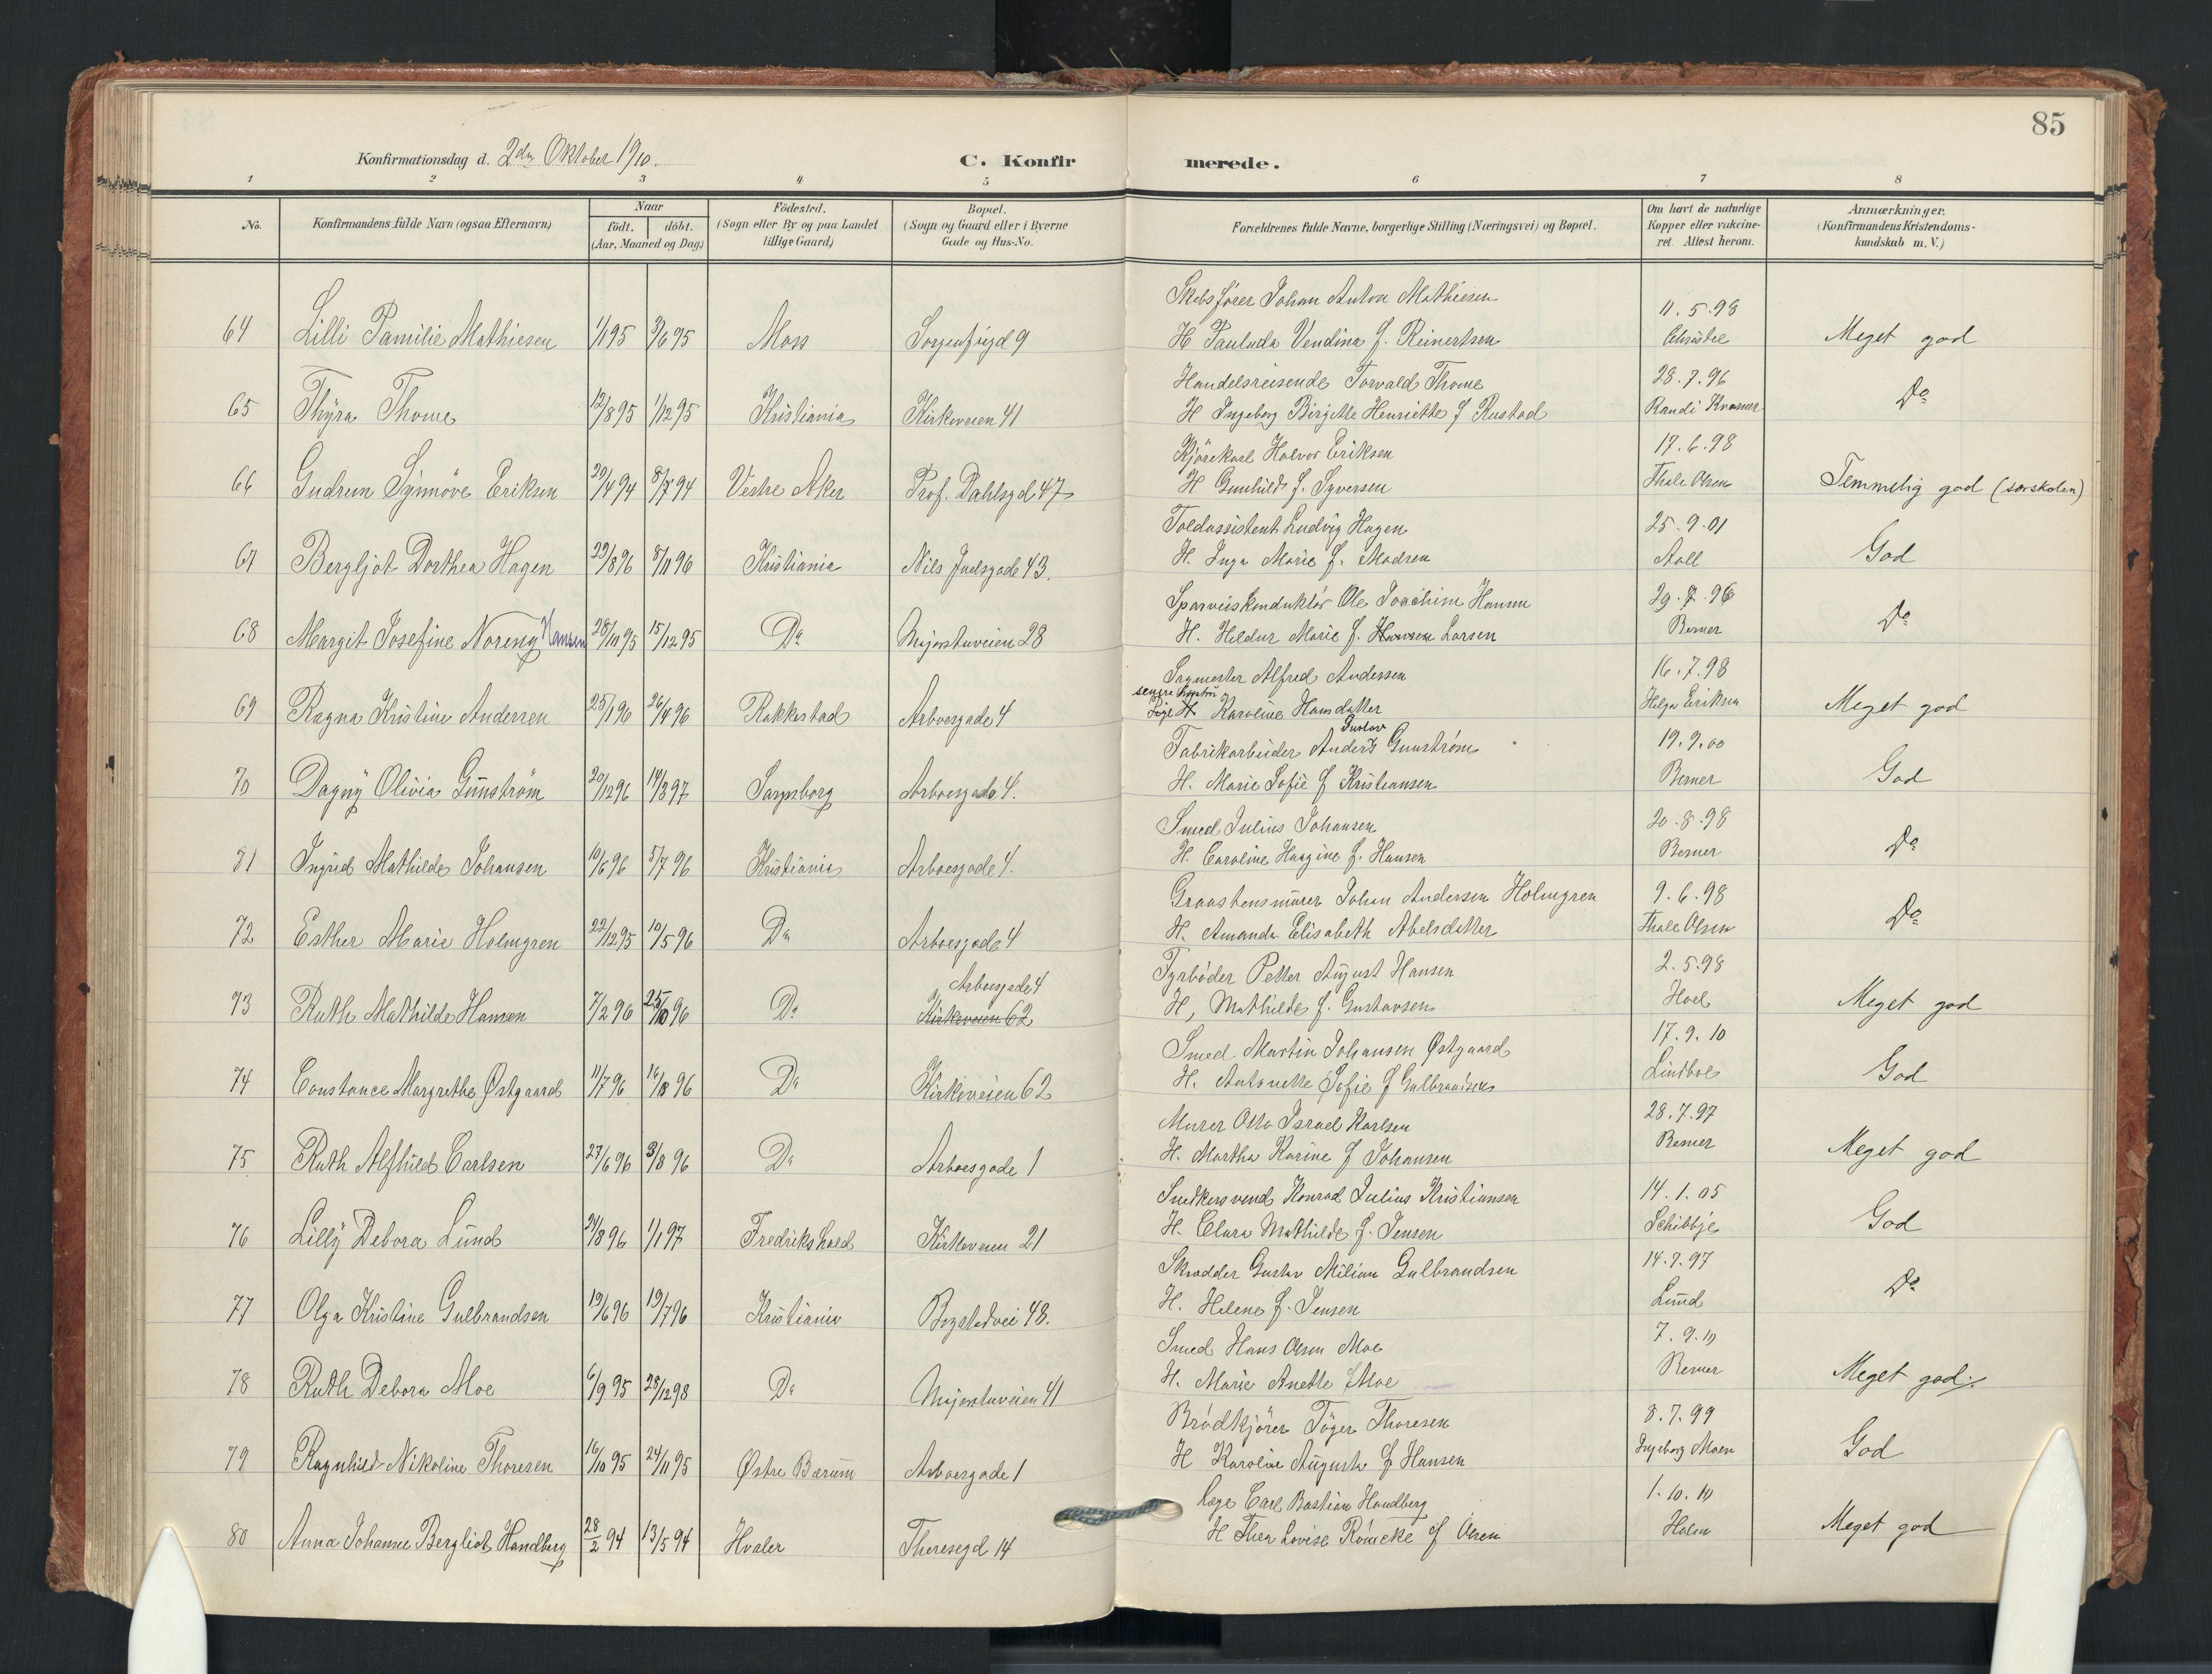 85
Konfirmationsdag d. 2den Oktober 1910.
C. Konfirmerede.
1 2 3 4 5 6 7 8
No. Konfirmandens fulde Navn (ogsaa Efternavn) Naar født. døbt. (Aar, Maaned og Dag) Födested. (Sogn eller By og paa Landet tillige Gaard) Bopæl. (Sogn og Gaard eller i Byerne Gade og Hus-No. Forældrenes fulde Navne, borgerlige Stilling (Næringsvei) og Bopæl. Om havt de naturlige Kopper eller vakcineret. Attest herom. Anmærkninger. (Konfirmandens Kristendomskundskab m. V.)
Skibsfører Johan Anton Mathiesen 11.5.98
64 Lilli Pamilie Mathiesen 1/1 95 3/6 95 Moss Sorgenfrigd 9 H Paulada Vendina f. Reinertsen Christie Meget god
Handelsreisende Torvald Thome 28.7.96
65 Thyra Thome 12/8 95 1/12 95 Kristiania Kirkeveien 41 H Ingeborg Birgitte Henriette f Rustad Randi Do
Kjørekarl Halvor Eriksen 17.6.98
66 Gudrun Synnöve Eriksen 20/4 94 8/7 94 Vestre Aker Prof. Dahlsgd 47 H Gunhild f. Syversen Thale Olsen Temmelig god (særskolen)
Toldassistent Ludvig Hagen 25.9.01
67 Bergljot Dorthea Hagen 29/8 96 8/11 96 Kristiania Nils Juelsgade 43. H. Inga Marie f. Madsen Aall God
Sporveiskonduktör Ole Joachim Hansen 29.7.96
68 Margit Josefine Noreng Hansen 28/10 95 15/12 95 Do Majorstuveien 28 H. Heldur Marie f. Hansen Larsen Berner Do
Sagmester Alfred Andersen 16.7.98
69 Ragna Kristine Andersen 25/1 96 26/4 96 Rakkestad Arboesgade 4 senere Pige H Karoline Hansdatter Helga Eriksen Meget god
Gustav
Fabrikarbeider Anders Gunstrøm 19.9.00
70 Dagny Olivia Gunström 20/12 96 14/3 97 Sarpsborg Arboesgade 4. H. Marie Sofie f Kristiansen Berner God
Smed Julius Johansen 20.8.98
71 Ingrid Mathilde Johansen 10/6 96 5/7 96 Kristiania Arboesgade 4. H. Caroline Haagine f. Hansen Berner Do
Graastensmurer Johan Andersen Holmgren 9.6.98
72 Esther Marie Holmgren 22/12 95 10/5 96 Do Arboesgade 4 H. Amanda Elisabeth Abelsdatter Thale Olsen Do
Arboesgade 4 Fyrbøder Petter August Hansen 2.5.98
73 Ruth Mathilde Hansen 7/2 96 25/10 96 Do Kirkeveien 62 H, Mathilde f. Gustavsen Hoel Meget god
Smed Martin Johansen Østgaard 17.9.10
74 Constance Margrethe Østgaard 11/7 96 16/8 96 Do Kirkeveien 62 H. Antonette Sofie f Gulbrandsen Lindboe God
Murer Otto Israel Karlsen 28.7.97
75 Ruth Alfhild Carlsen 27/6 96 3/8 96 Do Arboesgade 1 H. Martha Karine f Johansen Berner Meget god
Snedkersvend Konrad Julius Kristiansen 14.1.05
76 Lilly Debora Lund 24/8 96 1/1 97 Fredrikshald Kirkeveien 21 H. Clara Mathilde f. Jensen Schibbye God
Skrædder Gustav Milian Gulbrandsen 14.7.97
77 Olga Kristine Gulbrandsen 19/6 96 19/7 96 Kristiania Bogstadvei 48. H. Helene f. Jensen Lund Do
Smed Hans Olsen Moe 7.9.10
78 Ruth Debora Moe 6/9 95 28/12 98 Do Majorstuveien 41 H. Marie Anette f Moe Berner Meget god.
Brødkjører Töger Thoresen 8.7.99
79 Ragnhild Nikoline Thoresen 16/10 95 24/11 95 Østre Bærum Arboesgade 1 H Karoline Augusta f Hansen Ingeborg Moen God
Læge Carl Bastian Handberg 1.10.10
80 Anna Johanne Bergliot Handberg 28/2 94 13/5 94 Hvaler Theresegd 14 H Thea Lovise Rømcke f Olsen Holm Meget god